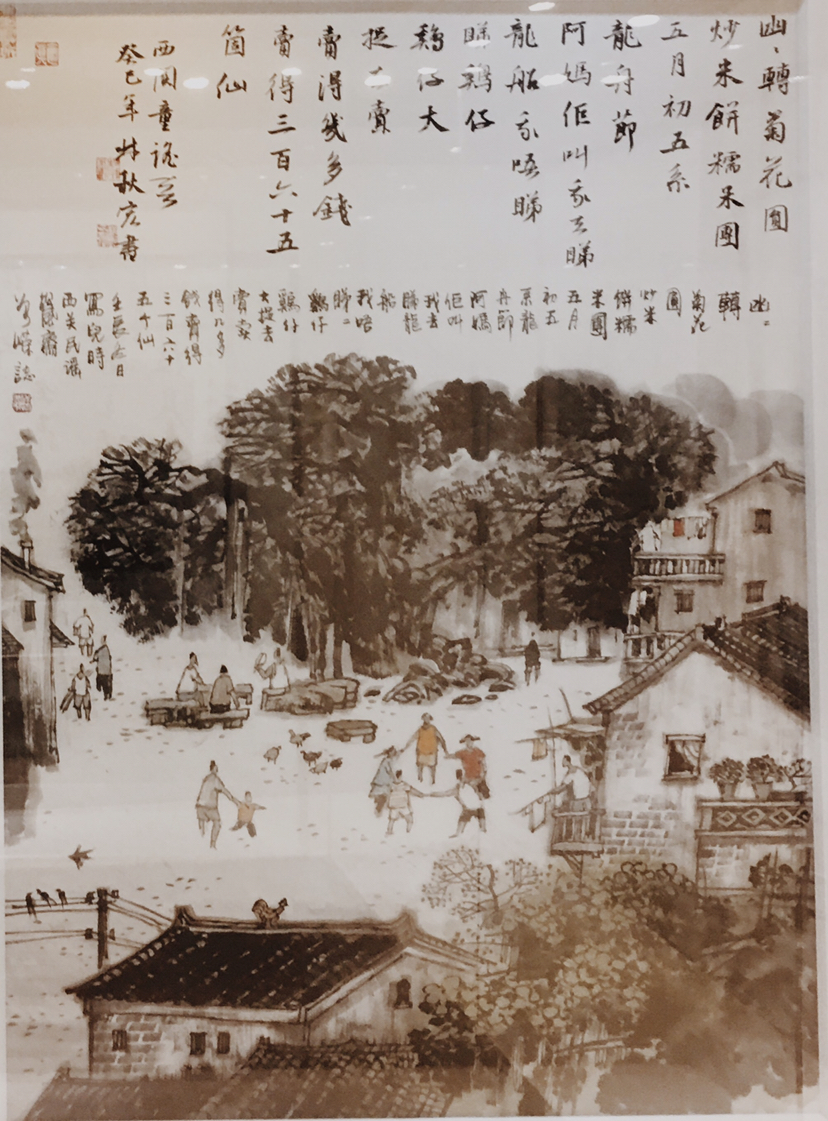 凼〻轉菊花圓
炒米餅糯米團
五月初五系
龍舟節
阿媽佢叫我去睇
龍船我唔睇
睇鷄仔
鷄仔大
捉去賣
賣淂幾多錢
賣得三百六十五
箇仙
西関童謡
癸巳年林秋宏書
凼〻
轉
菊花
圓
炒米
餅糯
米團
五月
初五
系龍
舟節
阿媽
佢叫
我去
睇龍
船
我唔
睇〻
鷄仔
鷄仔
大捉去
賣賣
得几多
錢賣得
三百六十
五个仙
壬辰冬日
寫兒時
西关民謡
誌